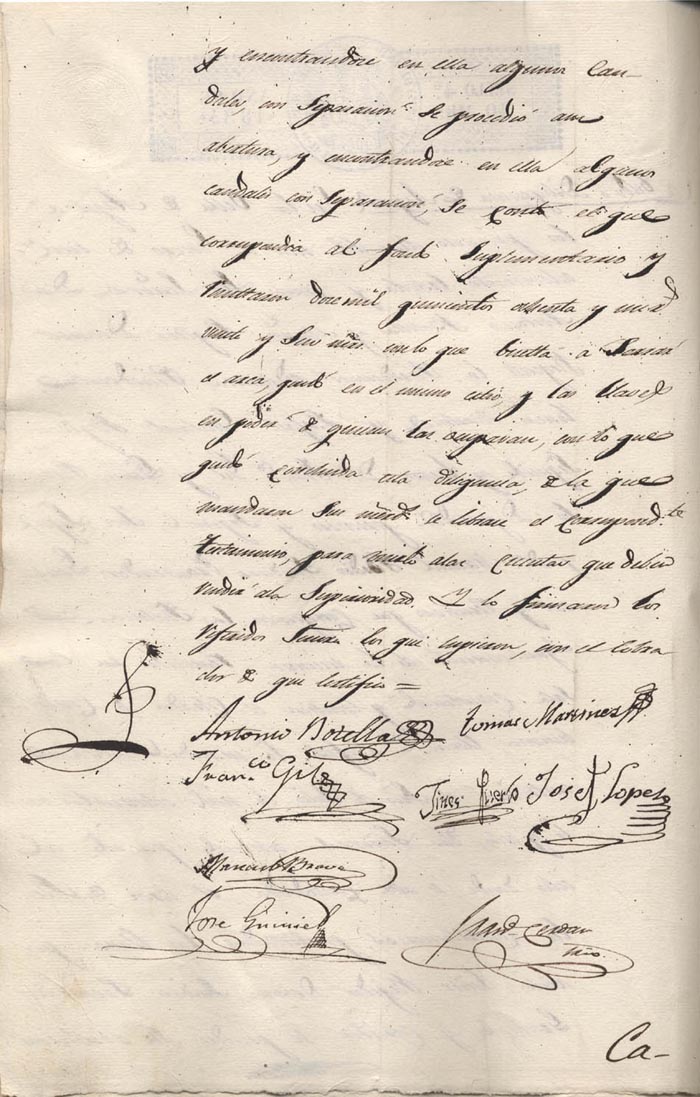 y encontrandose en ella algunos Cau-
dales, con Separacion se procedió a su
abertura, y encontrandose en ella algunos
caudales con Separacion, Se contó el que
correspondia al fondo Suplementario y
resultaron doce mil quinientos ochenta y
veinte y seis mrs. con lo que buelta a Serrar
el arca, quedó en el mismo citio, y las llaves
en poder de quienes las ocupavan, con lo que
quedó concluida esta diligencia, de la que
mandaron Sus mrds. se librase el Correspond.te
testimonio, para unirlo alas Cuentas que deben
rendir ala Superioridad. Y lo firmaron los
referidos Señores los que supieron, con el Cobra
dor de que certifico =
Antonio Botella
tomas Martinez
Fran.co Gil
Gines Huerto
Josef Lopez
Marcial Bravo
Jose
Fran.co Cerdan
Srio.
Ca-